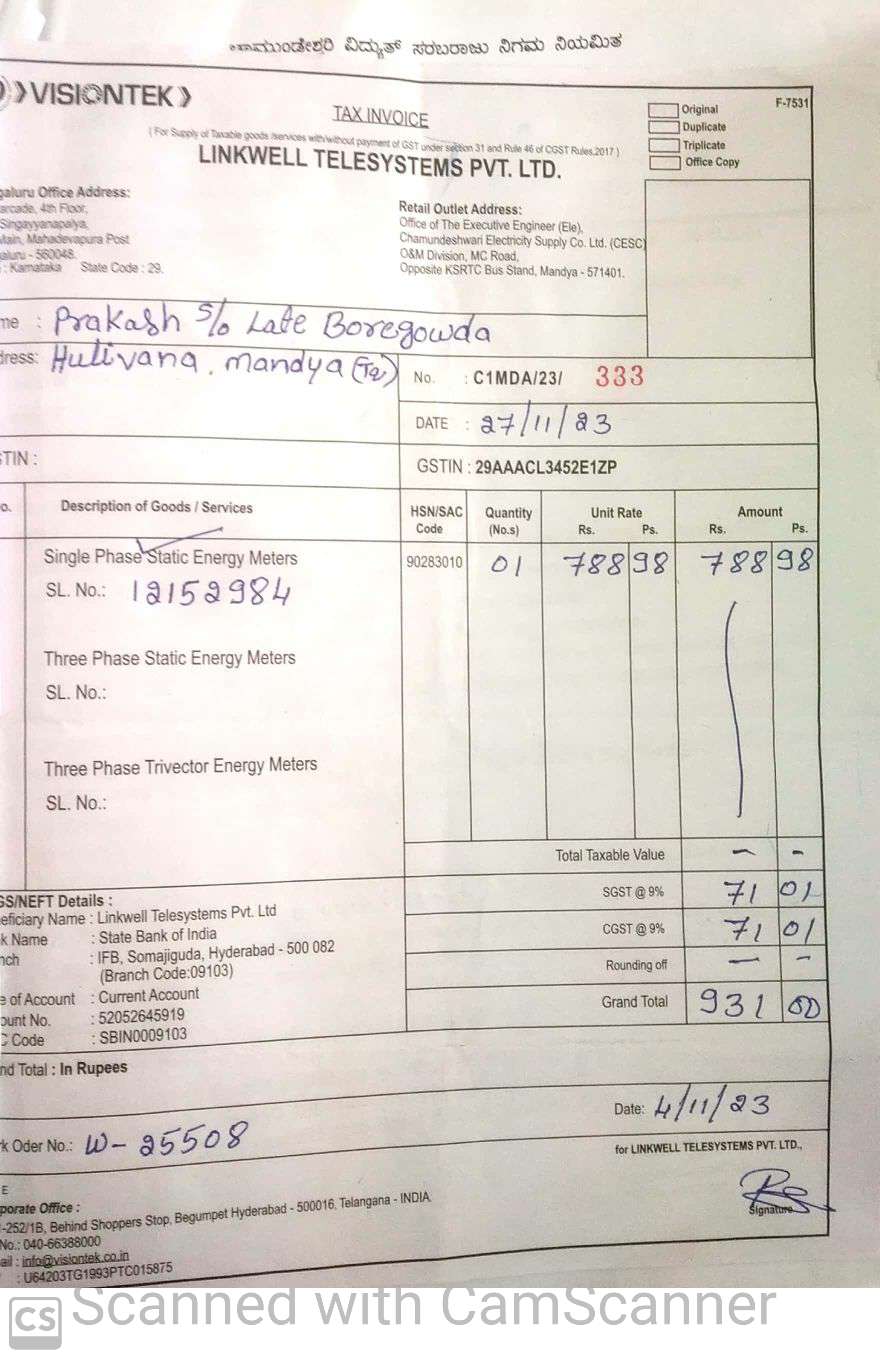 ಚಾಮುಂಡೇಶ್ವರಿ ವಿದ್ಯುತ್ ಸರಬರಾಜು ನಿಗಮ ನಿಯಮಿತ
VISIONTEK
TAX INVOICE
Original
F-7531
Duplicate
Triplicate
Office Copy
( For Supply of Taxable goods /services with/without payment of GST under section 31 and Rule 46 of CGST Rules,2017 )
LINKWELL TELESYSTEMS PVT. LTD.
galuru Office Address:
arcade, 4th Floor,
Singayyanapalya,
Main, Mahadevapura Post
aluru - 560048.
: Karnataka State Code : 29.
Retail Outlet Address:
Office of The Executive Engineer (Ele),
Chamundeshwari Electricity Supply Co. Ltd. (CESC)
O&M Division, MC Road,
Opposite KSRTC Bus Stand, Mandya - 571401.
me : Prakash S/o Late Boregowda
dress: Hulivana, Mandya (Tq)
No. : C1MDA/23/ 333
DATE : 27/11/23
TIN :
GSTIN : 29AAACL3452E1ZP
o. Description of Goods / Services HSN/SAC Code Quantity (No.s) Unit Rate Rs. Ps. Amount Rs. Ps.
Single Phase Static Energy Meters 90283010 01 788 98 788 98
SL. No.: 12152984
Three Phase Static Energy Meters
SL. No.:
Three Phase Trivector Energy Meters
SL. No.:
Total Taxable Value - -
SGST @ 9% 71 01
CGST @ 9% 71 01
Rounding off - -
Grand Total 931 00
GS/NEFT Details :
eficiary Name : Linkwell Telesystems Pvt. Ltd
k Name : State Bank of India
nch : IFB, Somajiguda, Hyderabad - 500 082
(Branch Code:09103)
e of Account : Current Account
ount No. : 52052645919
C Code : SBIN0009103
nd Total : In Rupees
Date: 4/11/23
k Oder No.: W- 25508
for LINKWELL TELESYSTEMS PVT. LTD.,
Signature
E
porate Office :
-252/1B, Behind Shoppers Stop, Begumpet Hyderabad - 500016, Telangana - INDIA
No.: 040-66388000
ail : info@visiontek.co.in
: U64203TG1993PTC015875
CS Scanned with CamScanner